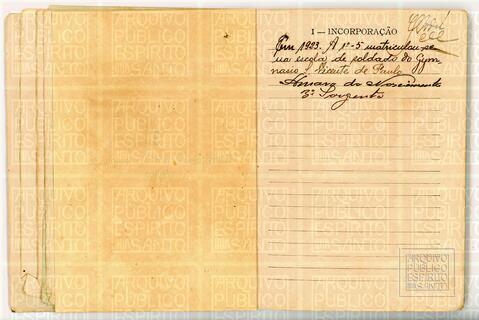 I — INCORPORAÇÃO
Em 1923. A 1º-5 matriculou-se
na escola de soldado do Gym-
nasio S. Vicente de Paulo
do Nascimento
3º Sargento
ARQUIVO
PÚBLICO
ESPÍRITO
SANTO